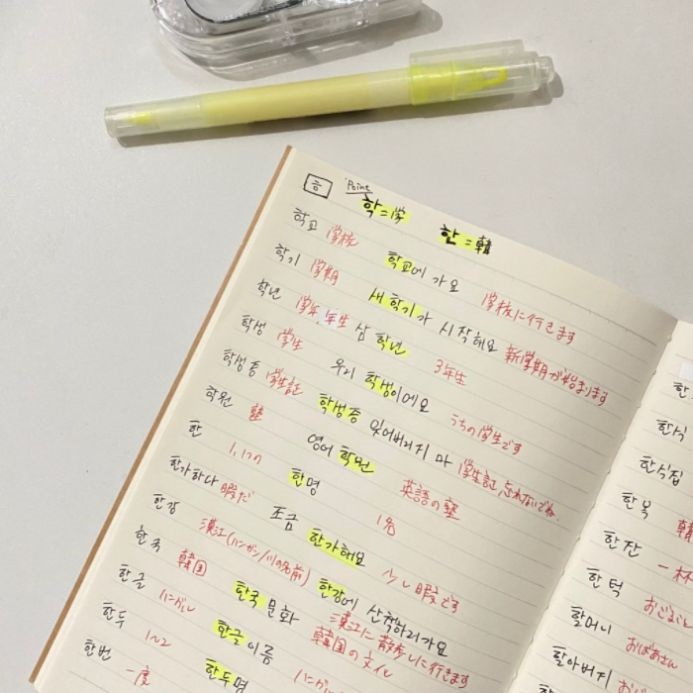 ㅎ Point
학=学 한=韓
학교 学校 학교에 가요 学校に行きます
학기 学期 새 학기가 시작해요 新学期が始まります
학년 学年、年生 삼 학년 3年生
학생 学生 우리 학생이에요 うちの学生です
학생증 学生証 학생증 잊어버리지 마 学生証、忘れないでね
학원 塾 영어 학원 英語の塾
한 1、1つの 한명 1名
한가하다 暇だ 조금 한가해요 少し暇です
한강 漢江(ハンガン/川の名前) 한강에 산책하러가요 漢江に散歩しに行きます
한국 韓国 한국 문화 韓国の文化
한글 ハングル 한글 이름
한두 1~2 한두명
한번 一度
한
한식
한식집
한복
한잔 一杯
한턱
할머니 おばあさん
할아버지